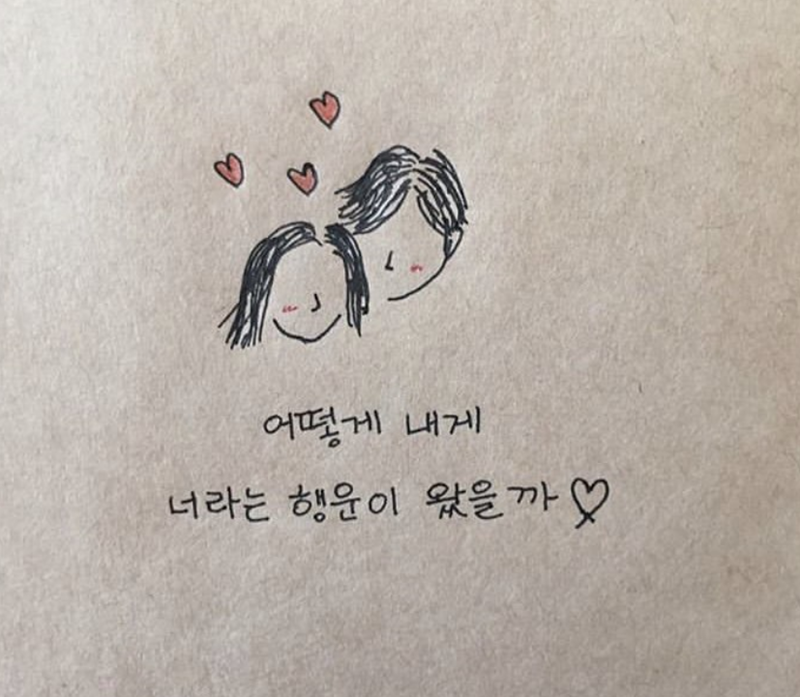 어떻게 내게
너라는 행운이 왔을까♡